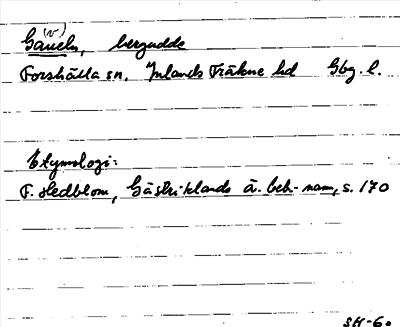 (v)
Gaueln, bergudde
Forshälla sn. Inlands Fräkne hd Gbg. l.
Etymologi:
F. Hedblom, Gästriklands ä. beb-namn, s. 170
SH-60